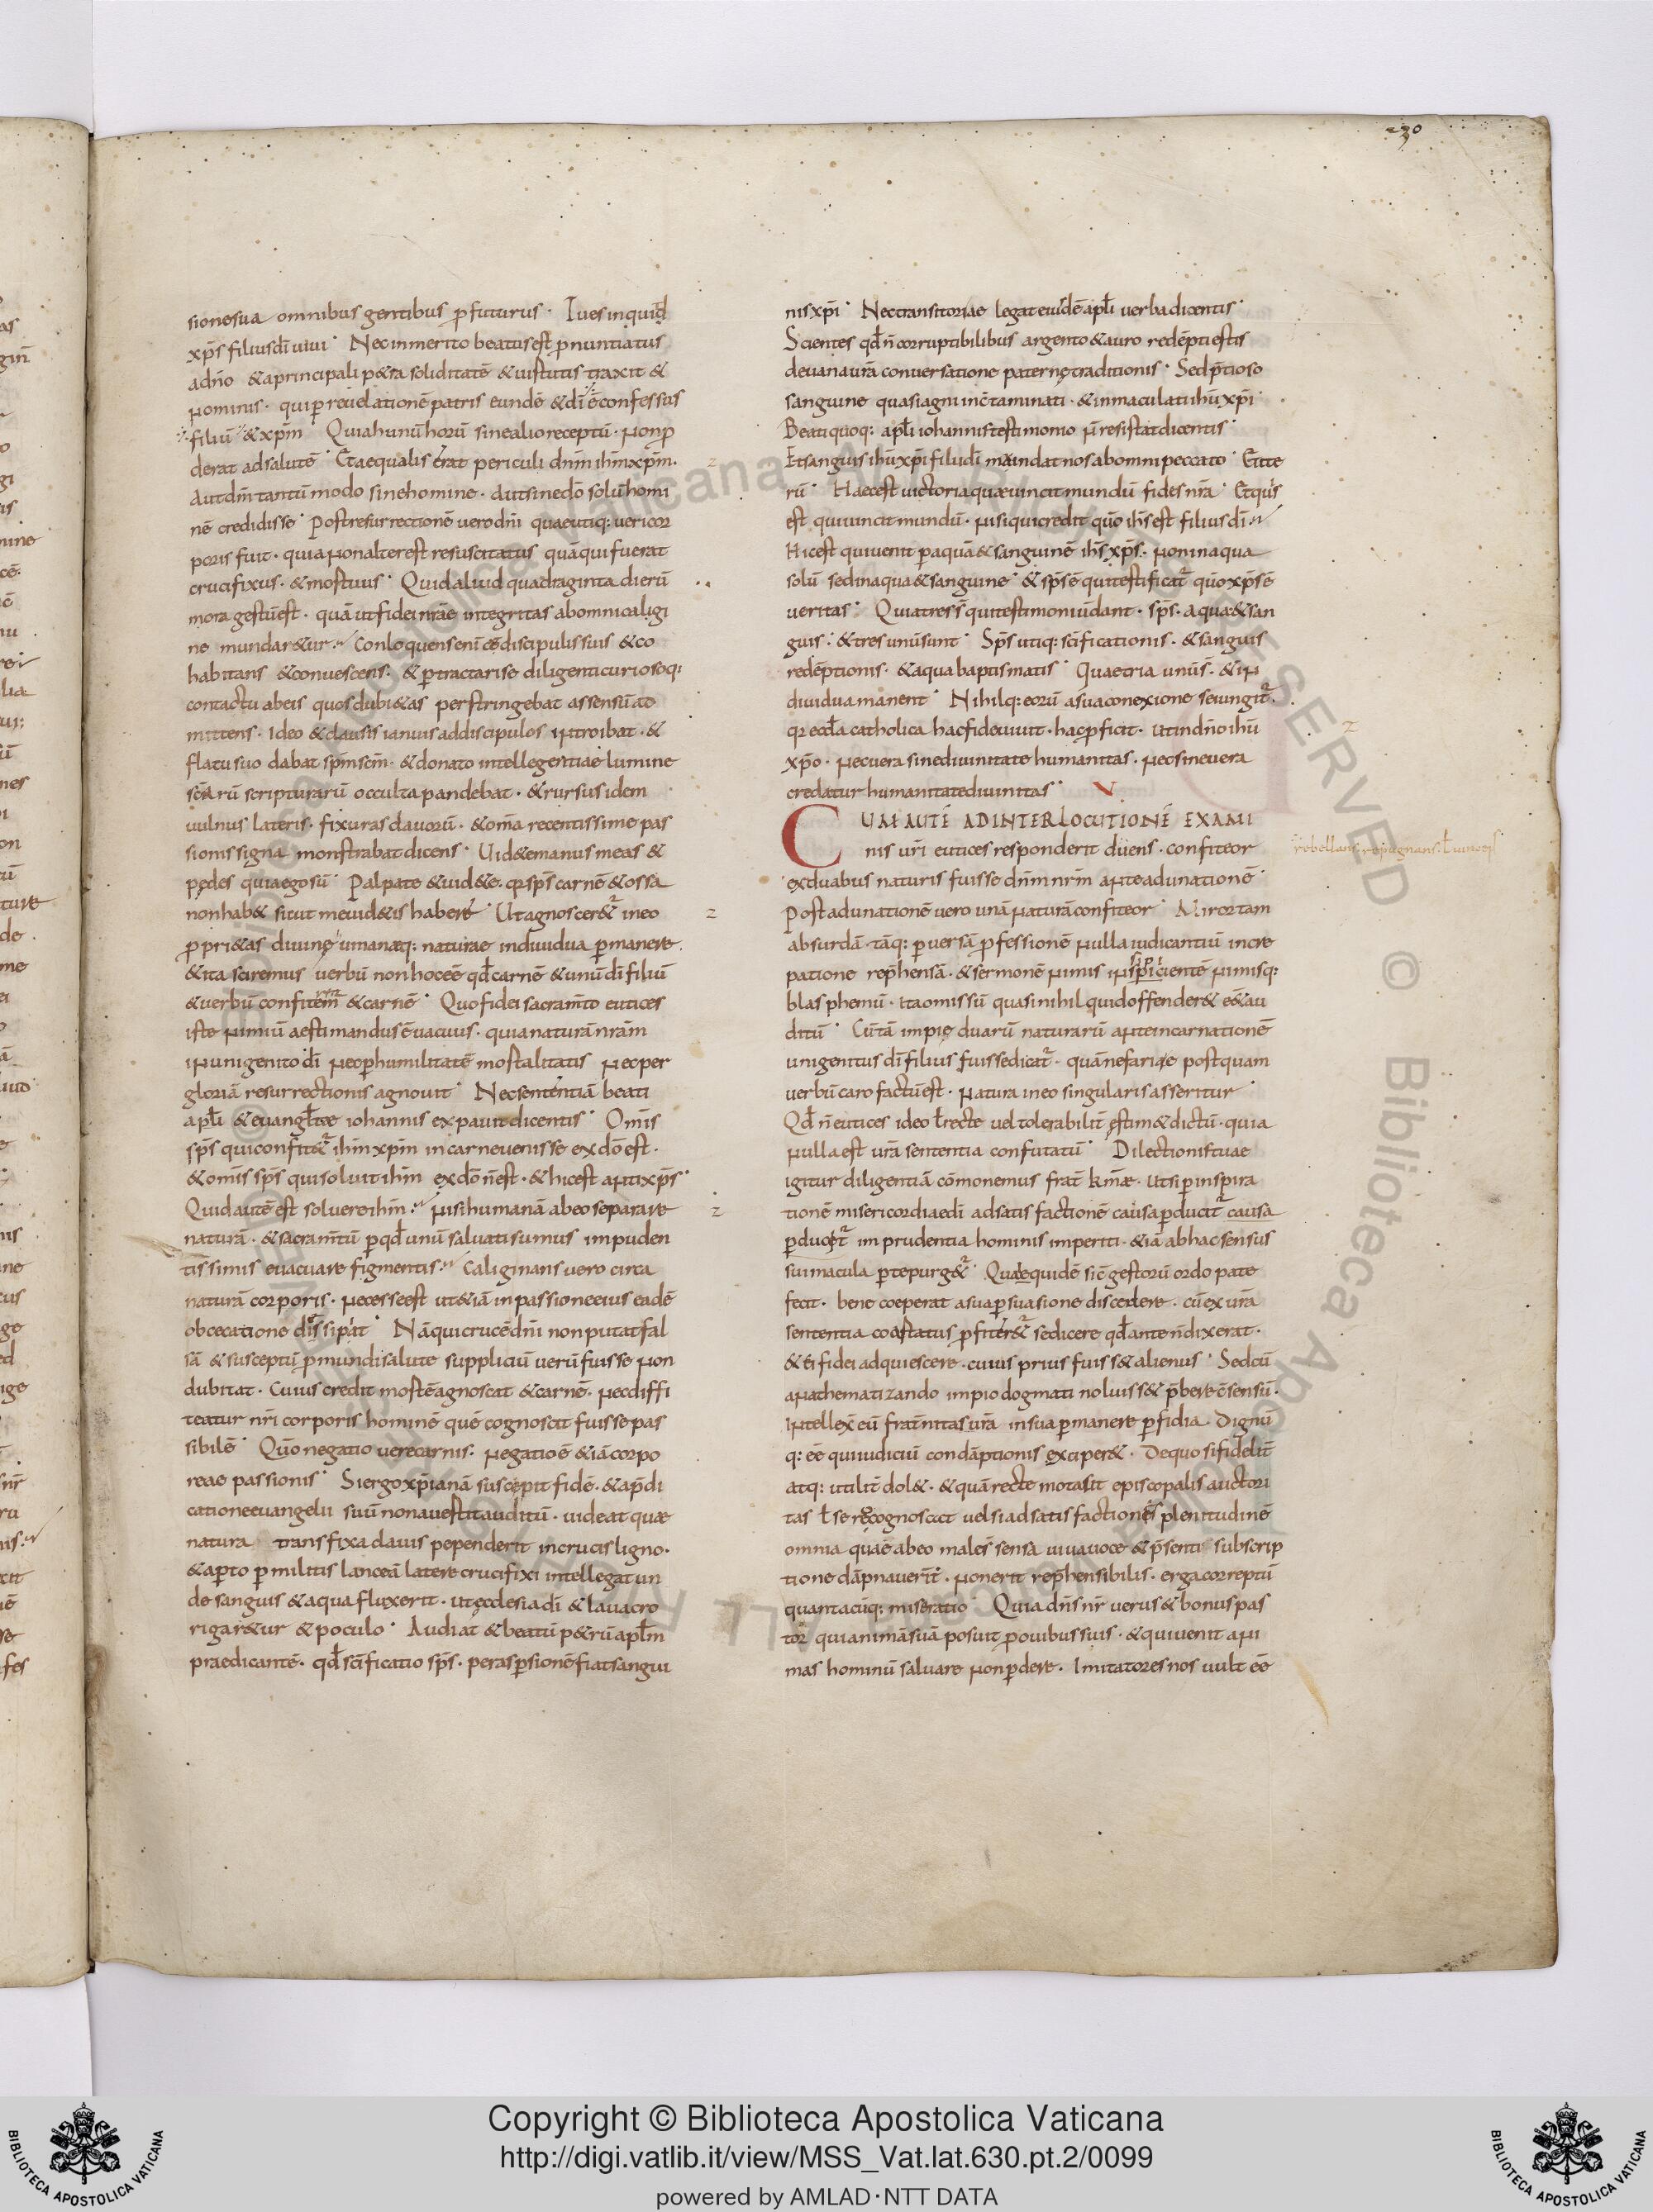 230
sionesua omnibus gentibus ꝓfuturus · Tu es inquid
xp̄s filius dī uiui · Nec inmerito beatus est ꝓnuntiatus
adn̄o & a principali p&ra soliditatē & uirtutis traxit &
nominis · qui ꝑ reuelationē patris eundē & dī ē confessus
filiū & xp̄m Quia hunū horū sine alio receptū · non ꝓ
derat ad salutē · Et aequalis erat periculi dn̄m ih̄m xp̄m ·
Aut dm̄ tantū modo sine homine · aut sine dō solū homi
nē credidisse · Post resurrectionē uero dn̄i quae utiq: ueri cor
poris fuit · quia non alter est resuscitatus quā qui fuerat
crucifixus · & mortuus · Quid aliud quadraginta dierū
mora gestū est · quā ut fidei nr̄ae integritas ab omni caligi
ne mundar&ur · Conloquens enī cū discipulis suis & co
habitans & conuescens · & ꝑtractari se diligenti curiosoq:
contactu ab eis quos dubi&as perstringebat assensū ad
mittens · ideo & clausis ianuis ad discipulos introibat · &
flatu suo dabat sp̄m sc̄m · & donato intellegentiae lumine
sc̄arū scripturarū occulta pandebat · & rursus idem
uulnus lateris · fixuras clauorū · & om̄a recentissime pas
sionis signa monstrabat dicens · Uid&e manus meas &
pedes quia ego sū · Palpate & uid&e · qr sp̄s carnē & ossa
non hab& sicut me uid&is habere · Ut agnoscer&ur in eo
ꝓpri&as diuinę umanaeq: naturae indiuidua ꝑmanere ·
& ita sciremus uerbū non hoc eē qd̄ carnē & unū dī filiū
& uerbū confitem̄ & carnē · Quo fidei sacram̄to eutices
iste nimiū aestimandus ē uacuus · quia naturā nr̄am
in unigenito dī nec ꝑ humilitatē mortalitatis nec per
gloriā resurrectionis agnouit · Nec sententiā beati
apl̄i & euangl̄tae iohannis expauit dicentis · Om̄is
sp̄s qui confit&ur ih̄m xp̄m in carne uenisse ex dō est ·
& om̄is sp̄s qui soluit ih̄m ex dō n̄ est · & hic est antixp̄s ·
Quid autē est soluere ih̄m · nisi humanā ab eo separare
naturā · & sacram̄tū ꝑ qd̄ unū saluati sumus impuden
tissimis euacuare figmentis · Caliginans uero circa
naturā corporis · necesse est ut &iā in passione eius eadē
obcecatione
Nā qui crucē dn̄i non putat fal
sā & susceptū ꝓ mundi salute suppliciū uerū fuisse non
dubitat · Cuius credit mortē agnoscat & carnē · nec diffi
teatur nr̄i corporis hominē quē cognoscit fuisse pas
sibilē · Qūo negatio uere carnis · negatio ē &iā corpo
reae passionis · Si ergo xp̄ianā suscepit fidē · & a p̄di
catione euangelii suū non auertit auditū · uideat quae
natura transfixa clauis pependerit in crucis ligno ·
& aꝑto ꝑ militis lanceā latere crucifixi intellegat un
de sanguis & aqua fluxerit · ut ęcclesia dī & lauacro
rigar&ur & poculo · Audiat & beatū p&rū apl̄m
praedicantē · qd̄ sc̄ificatio sp̄s · per asꝑsionē fiat sangui
nis xp̄i · Nec transitoriae legat eiusdē apl̄i uerba dicentis ·
Scientes qd̄ n̄ corruptibilibus argento & auro redēpti estis
de uana ur̄a conuersatione paternę traditionis · Sed p̄tioso
sanguine quasi agni inc̄taminati · & inmaculati ih̄u xp̄i ·
Beati quoq: apl̄i iohannis testimonio n̄ resistat dicentis ·
Et sanguis ih̄u xp̄i filii dī mundat nos ab omni peccato · Et ite
rū · Haec est uictoria quae uincit mundū fides nr̄a · Et quis
est qui uincit mundū · nisi qui credit qūo ih̄s est filius dī ·
Hic est qui uenit ꝑ aquā & sanguinē ih̄s xp̄s · non in aqua
solū sed in aqua & sanguine · & sp̄s ē qui testificatur qūo xp̄s ē
ueritas · Quia tres s̄ qui testimoniū dant · sp̄s · aqua & san
guis · & tres unū sunt · Sp̄s utiq: sc̄ificationis · & sanguis
redēptionis · & aqua baptismatis · Quae tria unū s̄ · & in
diuidua manent · Nihilq: eorū a sua conexione seiungitur ·
qr eccl̄a catholica hac fide uiuit · hac ꝓficit · ut in dn̄o ih̄u
xp̄o · nec uera sine diuinitate humanitas · nec sine uera
credatur humanitate diuinitas · V
CUM AUTĒ AD INTERLOCUTIONĒ EXAMI
nis ur̄i eutices responderit dicens · confiteor
ex duabus naturis fuisse dn̄m nr̄m ante adunationē ·
rebellans repugnans ł uincens
Post adunationē uero unā naturā confiteor · Miror tam
absurdā tāq: ꝑuersā ꝓfessionē nulla iudicantiū incre
patione rep̄hensā · & sermonē nimis insipientē nimisq:
blasphemū · ita omissū quasi nihil quid offender& e&au
ditū · Cū tā impie duarū naturarū ante incarnationē
unigenitus dī filius fuisse dicatur · quā nefariae postquam
uerbū caro factū est · natura in eo singularis asseritur ·
Qd̄ n̄ eutices ideo ł recte uel tolerabilit̄ estim& dictū · quia
nulla est ur̄a sententia confutatū · Dilectionis tuae
igitur diligentiā cōmonemus frat̄ km̄ae · ut si ꝑ inspira
tionē misericordiae dī ad satisfactionē causa ꝑducitur causa
ꝑducetur imprudentia hominis imperiti · & iā ab hac sensus
sui macula ꝑ te purg&ur · Quae quidē sic̄ gestorū ordo pate
fecit · bene coeperat a sua ꝑsuasione discedere · cū ex ur̄a
sententia coartatus ꝓfiter&ur se dicere qd̄ ante n̄ dixerat ·
& ei fidei adquiescere · cuius prius fuiss& alienus · Sed cū
anathematizando impio dogmati noluiss& p̄bere c̄sensū ·
intellex̄ eū frat̄nitas ur̄a in sua ꝑmanere ꝑfidia dignū
q: eē qui iudiciū condāptionis exciper& · De quo si fidelit̄
atq: utilit̄ dol& · & quā recte mota sit episcopalis auctori
tas ł se recognoscit uel si ad satisfactionis plenitudinē
omnia quae ab eo male s̄ sensa uiua uoce & p̄senti subscrip
tione dāpnauerit · non erit rep̄hensibilis · erga correptū
quantacūq: miseratio · Quia dn̄s nr̄ uerus & bonus pas
tor qui animā suā posuit ꝓ ouibus suis · & qui uenit ani
mas hominū saluare non ꝑdere · Imitatores nos uult eē
Copyright © Biblioteca Apostolica Vaticana
http://digi.vatlib.it/view/MSS_Vat.lat.630.pt.2/0099
powered by AMLAD·NTT DATA
BIBLIOTECA APOSTOLICA VATICANA
BIBLIOTECA APOSTOLICA VATICANA